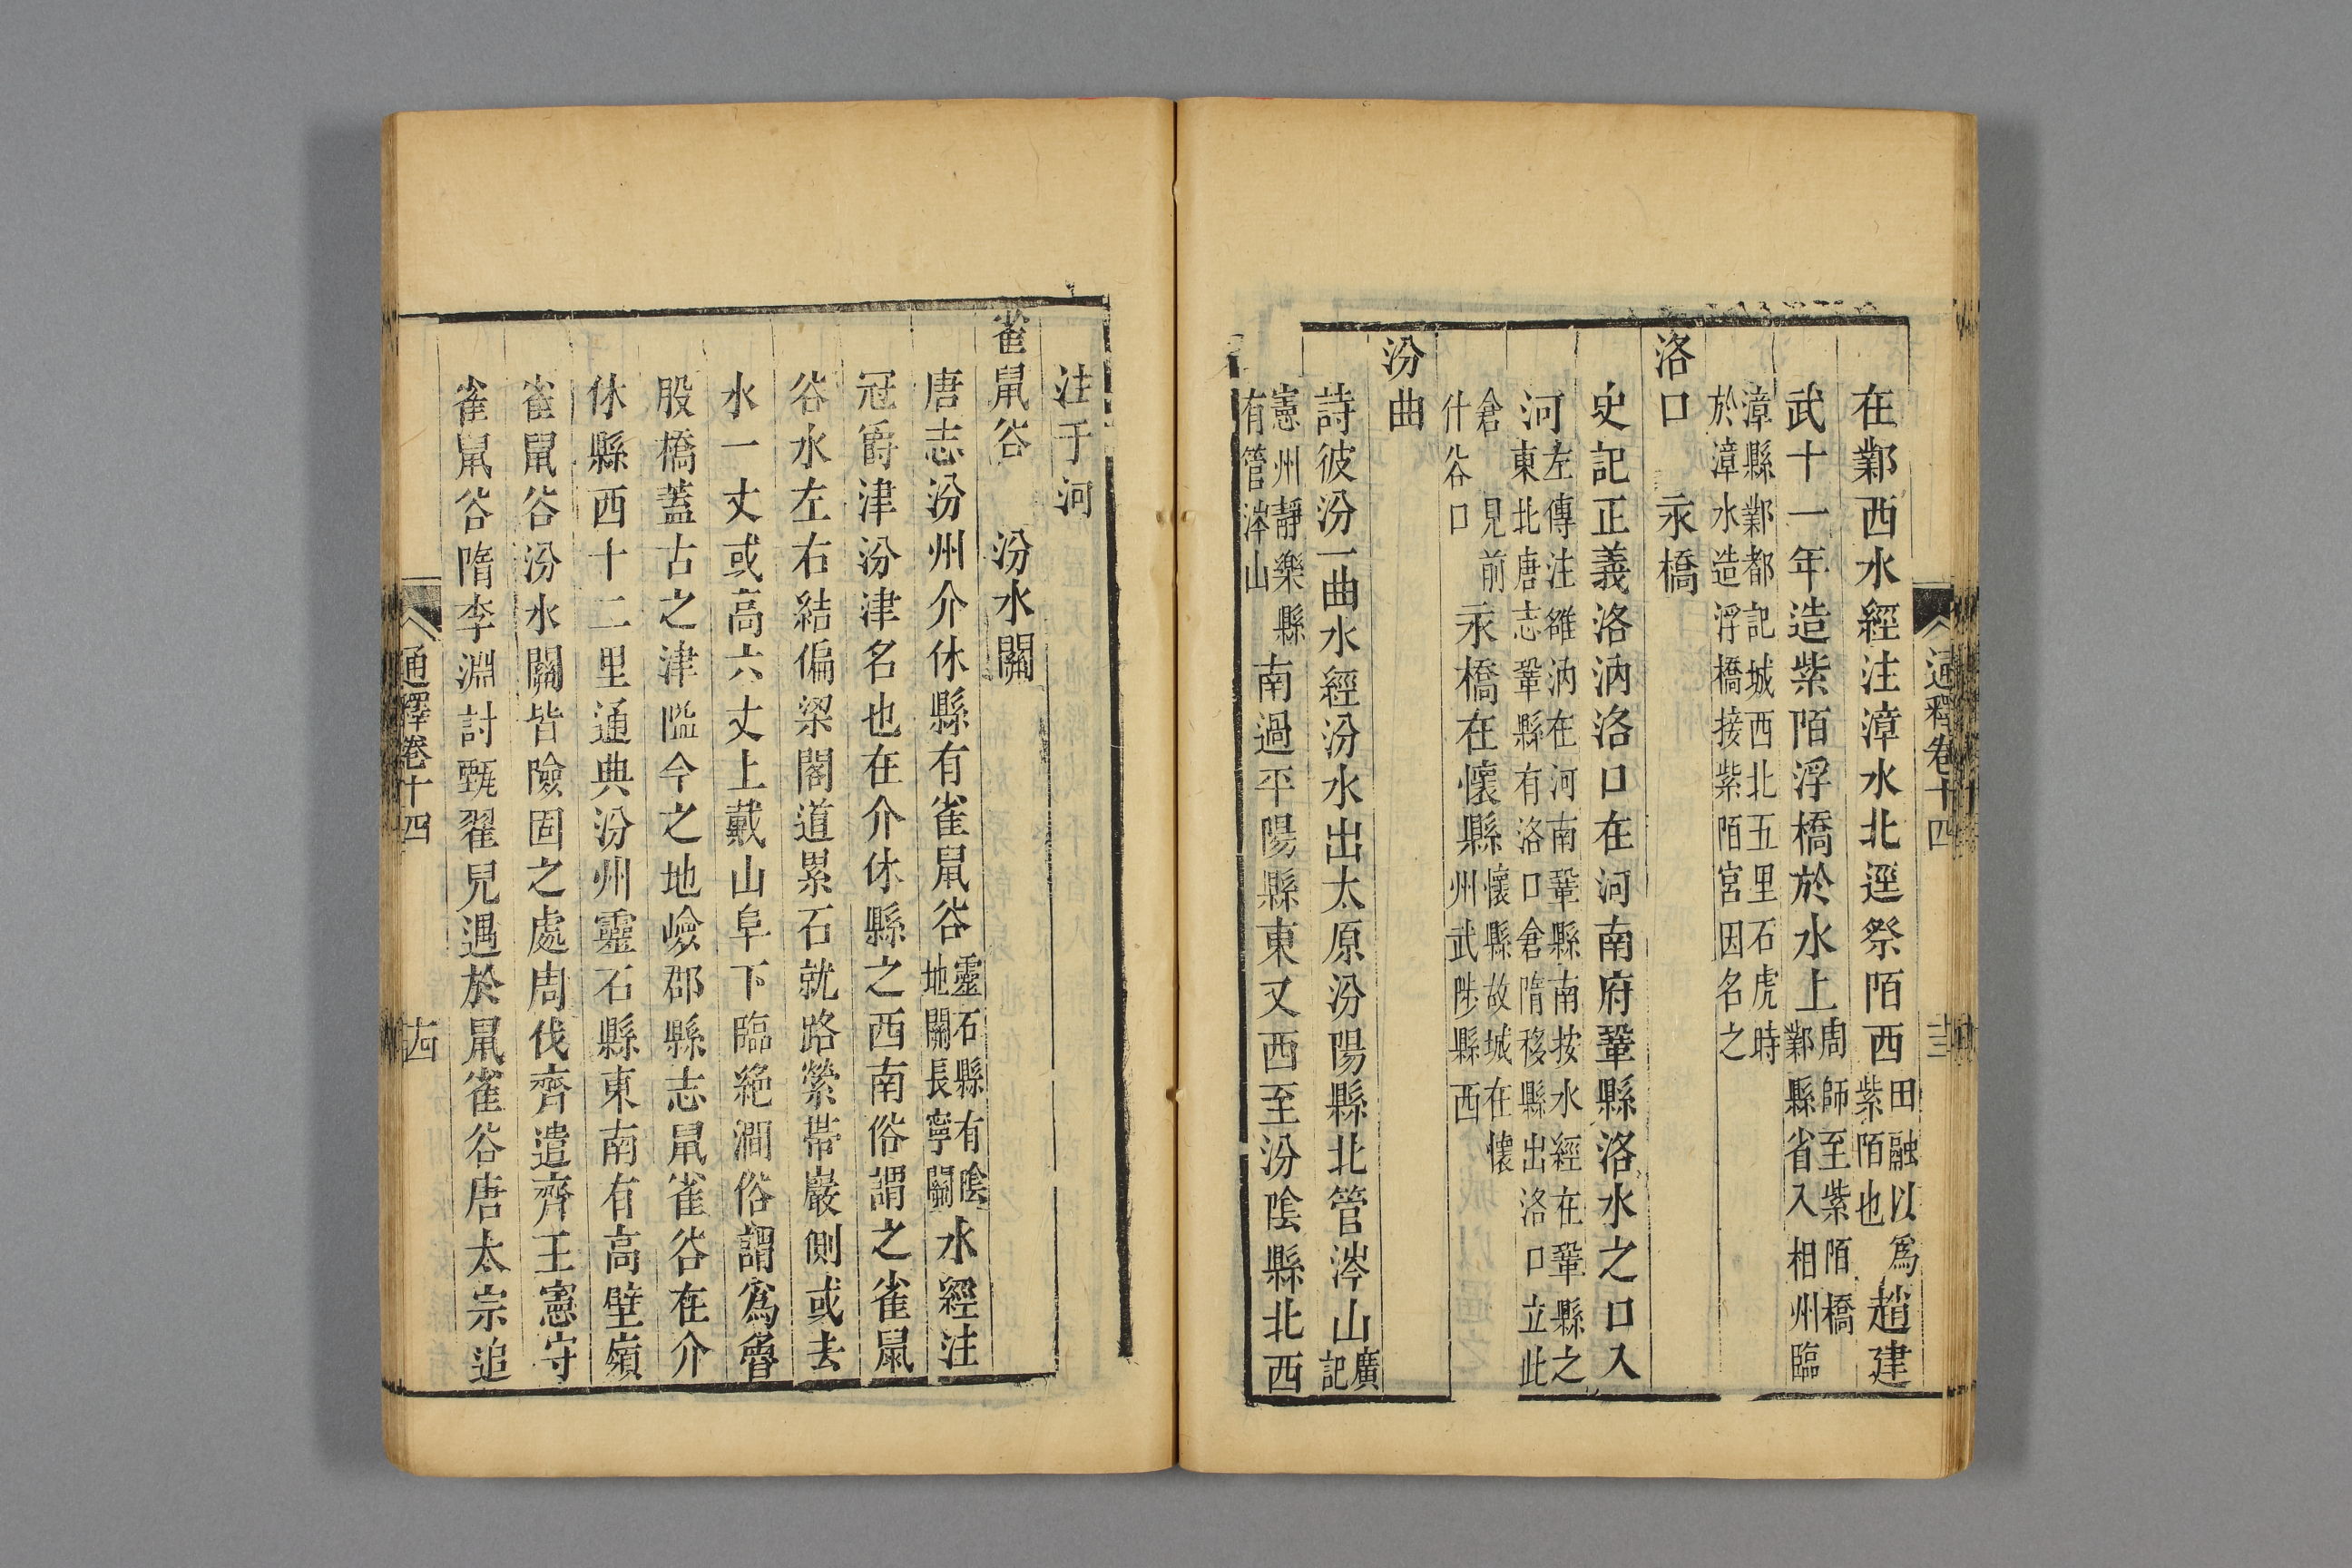 在鄴西水經注漳水北逕祭陌西田融以爲紫陌也趙建
武十一年造紫陌浮橋於水上周師至紫陌橋鄴縣省入相州臨
漳縣鄴都記城西北五里石虎時於漳水造浮橋接紫陌宮因名之
洛口　永橋
史記正義洛汭洛口在河南府鞏縣洛水之口入
河左傳注雒汭在河南鞏縣南按水經在鞏縣之東北唐志鞏縣有洛口倉隋移縣出洛口立此
倉見前什谷口永橋在懷縣懷縣故城在懷州武陟縣西
汾曲
詩彼汾一曲水經汾水出太原汾陽縣北管涔山廣記
憲州靜樂縣有管涔山南過平陽縣東又西至汾陰縣北西
通釋卷十四
十三
注于河
雀鼠谷　汾水關
唐志汾州介休縣有雀鼠谷靈石縣有陰地關長寧關水經注
冠爵津汾津名也在介休縣之西南俗謂之雀鼠
谷水左右結偏梁閣道累石就路縈帶巖側或去
水一丈或高六丈上戴山阜下臨絶澗俗謂爲魯
股橋蓋古之津隘今之地嶮郡縣志鼠雀谷在介
休縣西十二里通典汾州靈石縣東南有高壁嶺
雀鼠谷汾水關皆險固之處周伐齊遣齊王憲守
雀鼠谷隋李淵討甄翟兒遇於鼠雀谷唐太宗追
通釋卷十四
十四